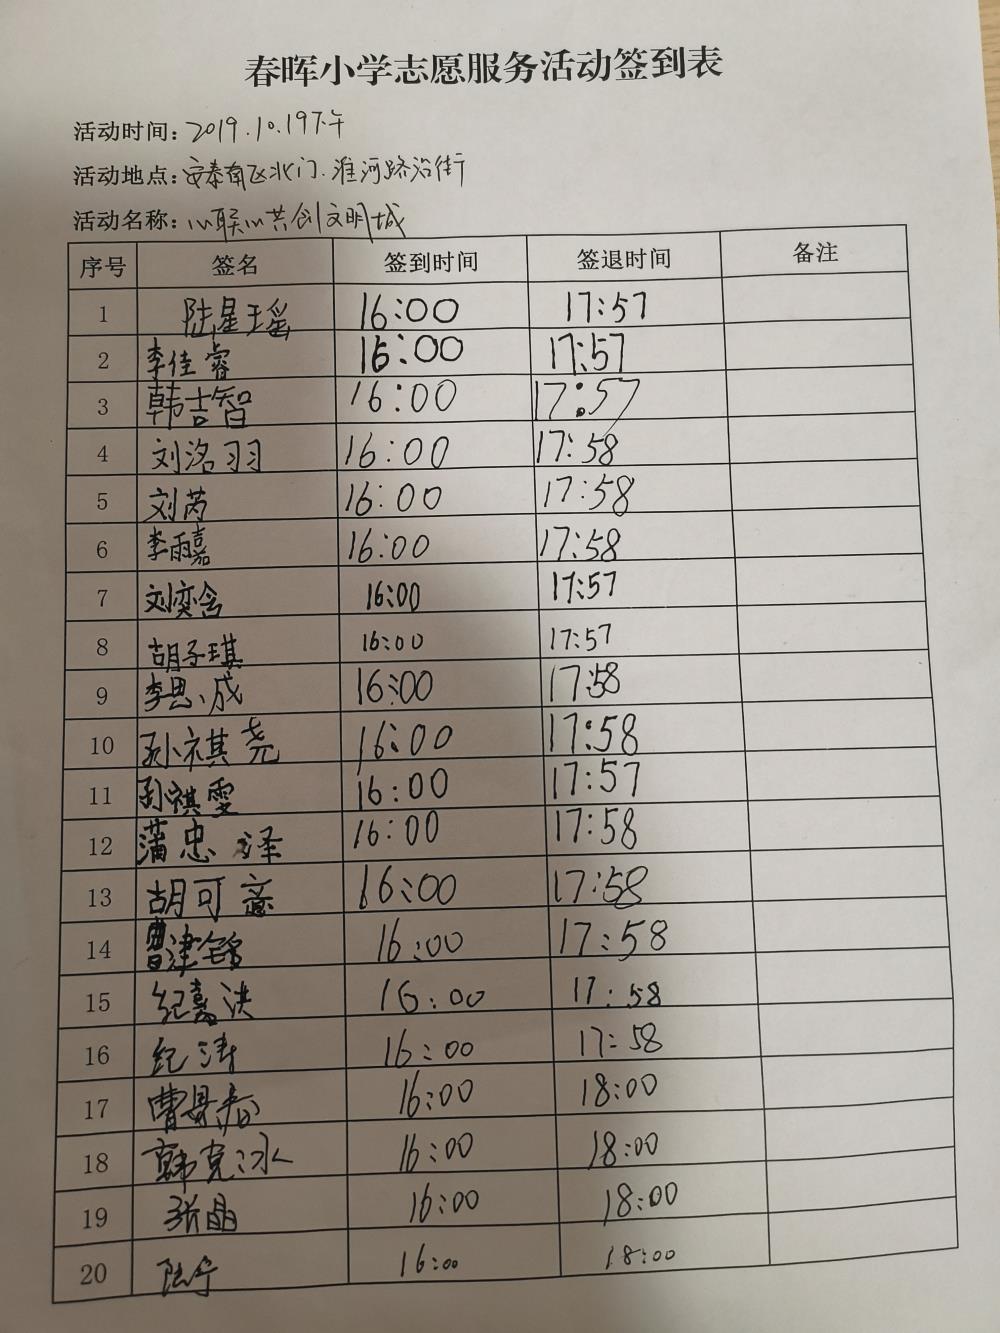 春晖小学志愿服务活动签到表
活动时间: 2019.10.19下午
活动地点: 安泰南区北门.淮河路沿街
活动名称: 心联心共创文明城
序号 签名 签到时间 签退时间 备注
1 陆星瑶 16:00 17:57
2 李佳睿 16:00 17:57
3 韩吉智 16:00 17:57
4 刘洺羽 16:00 17:58
5 刘芮 16:00 17:58
6 李雨嘉 16:00 17:58
7 刘奕含 16:00 17:57
8 胡子琪 16:00 17:57
9 李思成 16:00 17:58
10 孙祺尧 16:00 17:58
11 孙祺雯 16:00 17:57
12 蒲忠泽 16:00 17:58
13 胡可意 16:00 17:58
14 曹津铭 16:00 17:58
15 纪嘉洪 16:00 17:58
16 纪涛 16:00 17:58
17 曹春 16:00 18:00
18 韩克冰 16:00 18:00
19 张晶 16:00 18:00
20 陆宁 16:00 18:00